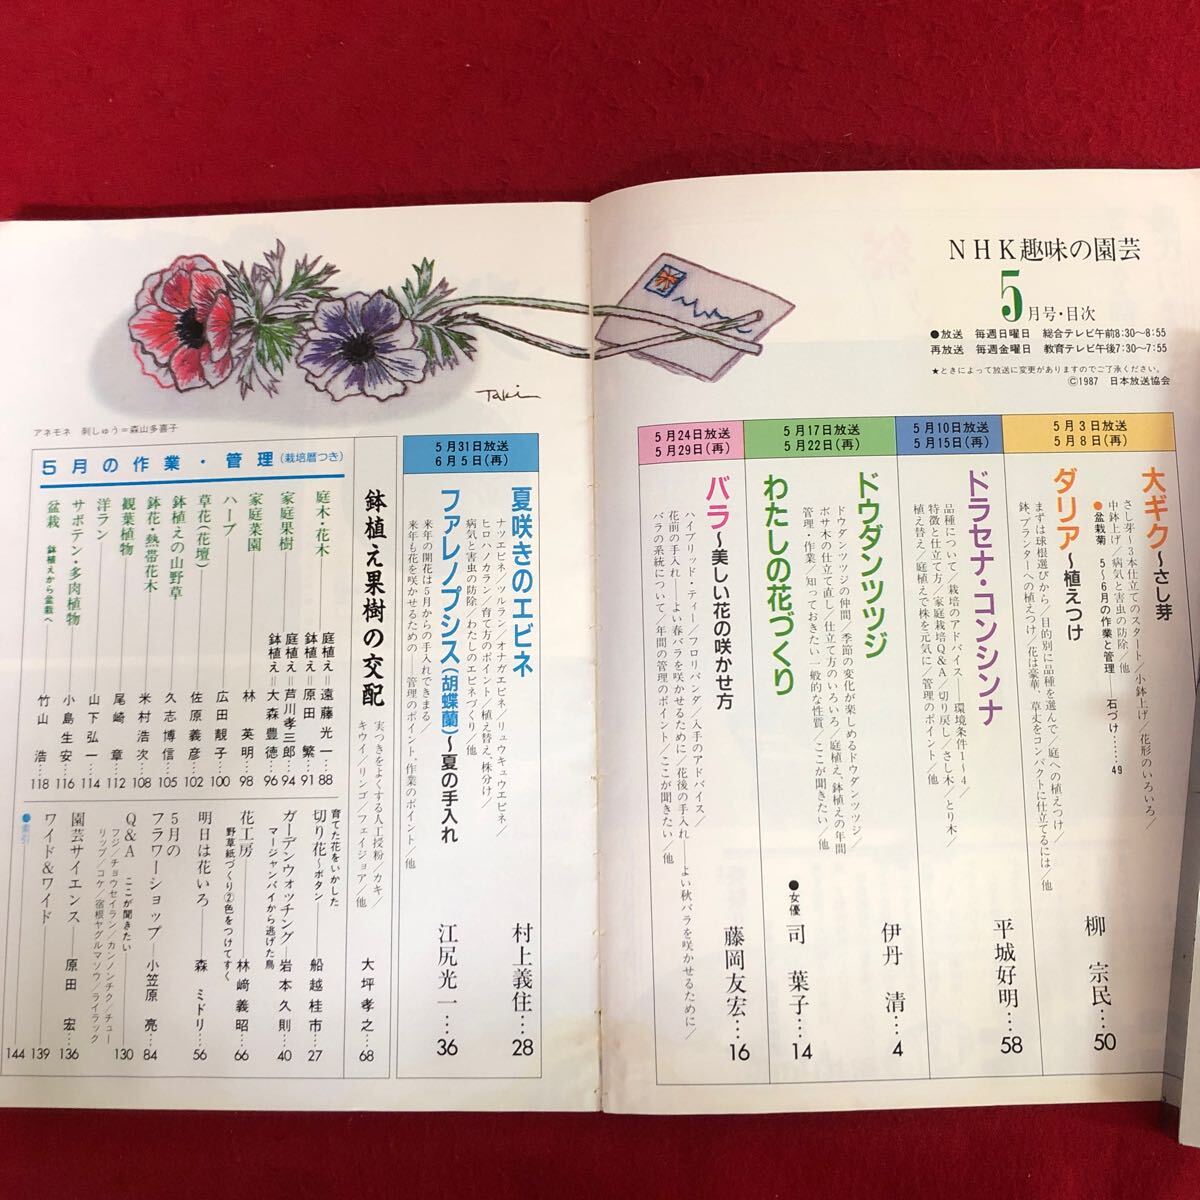 NHK趣味の園芸
5月号・目次
●放送 毎週日曜日 総合テレビ午前8:30〜8:55
再放送 毎週金曜日 教育テレビ午後7:30〜7:55
★ときによって放送に変更がありますのでご了承ください。
©1987 日本放送協会
5月3日放送
5月8日(再)
大ギク〜さし芽
さし芽〜3本仕立てのスタート／小鉢上げ／花形のいろいろ／
中鉢上げ／病気と害虫の防除／他
●盆栽菊 5〜6月の作業と管理 石づけ……49
ダリア〜植えつけ
まずは球根選びから／目的別に品種を選んで／庭への植えつけ／
鉢、プランターへの植えつけ／花は豪華、草丈をコンパクトに仕立てるには／他
柳 宗民…50
5月10日放送
5月15日(再)
ドラセナ・コンシンナ
品種について／栽培のアドバイス——環境条件1〜4／
特徴と仕立て方／家庭栽培Q&A／切り戻し／さし木／とり木／
植え替え／庭植えで株を元気に／管理のポイント／他
平城好明…58
5月17日放送
5月22日(再)
ドウダンツツジ
ドウダンツツジの仲間／季節の変化が楽しめるドウダンツツジ／
ボサ木の仕立て直し／仕立て方のいろいろ／庭植え、鉢植えの年間
管理・作業／知っておきたい一般的な性質／ここが聞きたい／他
伊丹 清…4
わたしの花づくり
●女優 司 葉子…14
5月24日放送
5月29日(再)
バラ〜美しい花の咲かせ方
ハイブリッド・ティー／フロリバンダ／入手のアドバイス／
花前の手入れ——よい春バラを咲かせるために／花後の手入れ——よい秋バラを咲かせるために／
バラの系統について／年間の管理のポイント／ここが聞きたい／他
藤岡友宏…16
アネモネ 刺しゅう＝森山多喜子
Taki
5月31日放送
6月5日(再)
夏咲きのエビネ
ナツエビネ／ツルラン／オナガエビネ／リュウキュウエビネ／
ヒロハノカラン／育て方のポイント／植え替え、株分け／
病気と害虫の防除／わたしのエビネづくり／他
村上義住…28
ファレノプシス(胡蝶蘭)〜夏の手入れ
来年の開花は5月からの手入れできまる／
来年も花を咲かせるための 管理のポイント、作業のポイント／他
江尻光一…36
鉢植え果樹の交配
実つきをよくする人工授粉／カキ／
キウイ／リンゴ／フェイジョア／他
大坪孝之…68
5月の作業・管理(栽培暦つき)
庭木・花木
庭植え＝遠藤光一…88
鉢植え＝原田 繁…91
家庭果樹
庭植え＝芦川孝三郎…94
鉢植え＝大森豊徳…96
家庭菜園 林 英明…98
ハーブ 広田靚子…100
草花(花壇) 佐原義彦…102
鉢植えの山野草 久志博信…105
鉢花・熱帯花木 米村浩次…108
観葉植物 尾崎 章…112
洋ラン 山下弘一…114
サボテン・多肉植物 小島生安…116
盆栽 鉢植えから盆栽へ 竹山 浩…118
育てた花をいかした
切り花〜ボタン 船越桂市…27
ガーデンウォッチング 岩本久則…40
マージャンパイから逃げた鳥
花工房 林﨑義昭…66
野草紙づくり②色をつけてすく
明日は花いろ 森 ミドリ…56
5月の
フラワーショップ 小笠原 亮…84
Q&A ここが聞きたい…130
フジ／チョウセイラン／カンノンチク／チュー
リップ／コケ／宿根ヤグルマソウ／ライラック
園芸サイエンス 原田 宏…136
ワイド&ワイド 139
●索引 144